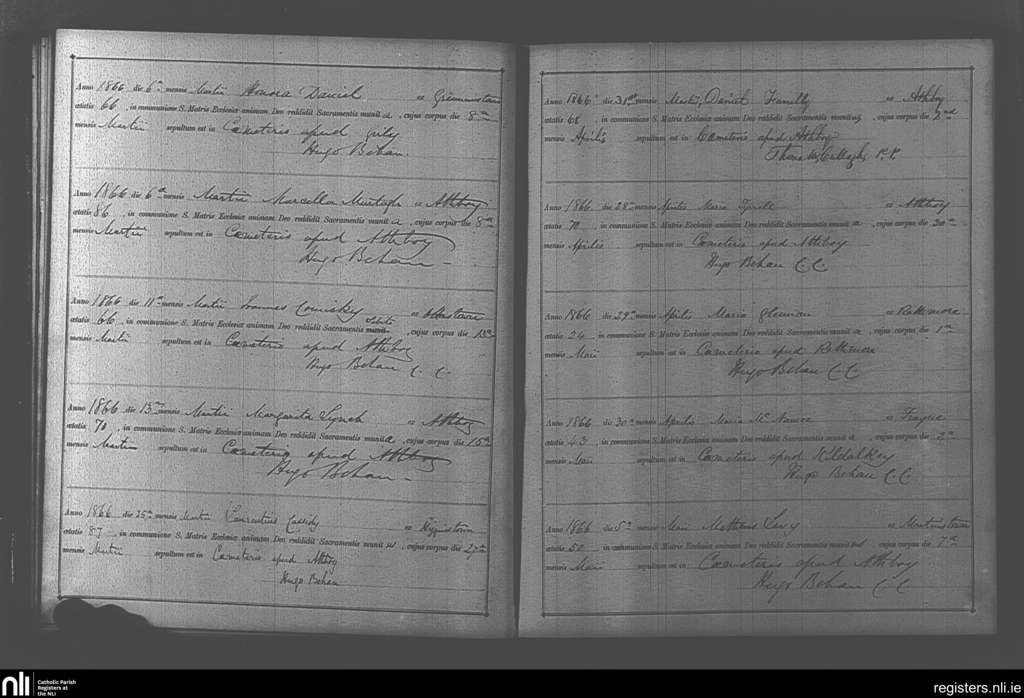 Anno 1866 die 6a mensis Martii Honora Daniel ex
aetatis 66, in communione S. Matris Ecclesiæ animam Deo reddidit Sacramentis munita, cujus corpus die 8a
mensis Martii sepultum est in Cæmeterio apud
Hugo Behan.
Anno 1866 die 6a mensis Martii Marcella Murtagh ex Athboy
aetatis 86, in communione S. Matris Ecclesiæ animam Deo reddidit Sacramentis munita, cujus corpus die 8a
mensis Martii sepultum est in Cæmeterio apud Athboy
Hugo Behan
Anno 1866 die 11a mensis Martii Joannes Comisky ex
aetatis 66, in communione S. Matris Ecclesiæ animam Deo reddidit Sacramentis munit, cujus corpus die 13a
mensis Martii sepultum est in Cæmeterio apud Athboy
Hugo Behan C. C.
Anno 1866 die 13a mensis Martii Margarita Lynch ex Athboy
aetatis 70, in communione S. Matris Ecclesiæ animam Deo reddidit Sacramentis munita, cujus corpus die 15a
mensis Martii sepultum est in Cæmeterio apud Athboy
Hugo Behan
Anno 1866 die 25a mensis Martii Laurentius Cassidy ex
aetatis 87, in communione S. Matris Ecclesiæ animam Deo reddidit Sacramentis munitus, cujus corpus die 27a
mensis Martii sepultum est in Cæmeterio apud Athboy
Hugo Behan
Anno 1866 die 31a mensis Martii Daniel ex Athboy
aetatis 68, in communione S. Matris Ecclesiæ animam Deo reddidit Sacramentis munitus, cujus corpus die 2nd
mensis Aprilis sepultum est in Cæmeterio apud Athboy
Thomas McCullagh P.P.
Anno 1866 die 28a mensis Aprilis Maria ex Athboy
aetatis 70, in communione S. Matris Ecclesiæ animam Deo reddidit Sacramentis munita, cujus corpus die 30a
mensis Aprilis sepultum est in Cæmeterio apud Athboy
Hugo Behan C.C.
Anno 1866 die 29a mensis Aprilis Maria ex Rathmore
aetatis 24, in communione S. Matris Ecclesiæ animam Deo reddidit Sacramentis munita, cujus corpus die 1a
mensis Maii sepultum est in Cæmeterio apud Rathmore
Hugo Behan C.C
Anno 1866 die 30a mensis Aprilis Maria McNamee ex
aetatis 43, in communione S. Matris Ecclesiæ animam Deo reddidit Sacramentis munita, cujus corpus die 2a
mensis Maii sepultum est in Cæmeterio apud Kildalkey
Hugo Behan C.C.
Anno 1866 die 5a mensis Maii Matheus ex Martinstown
aetatis 50, in communione S. Matris Ecclesiæ animam Deo reddidit Sacramentis munitus, cujus corpus die 7a
mensis Maii sepultum est in Cæmeterio apud Athboy
Hugo Behan C.C
nli Catholic Parish
Registers at
the NLI
registers.nli.ie